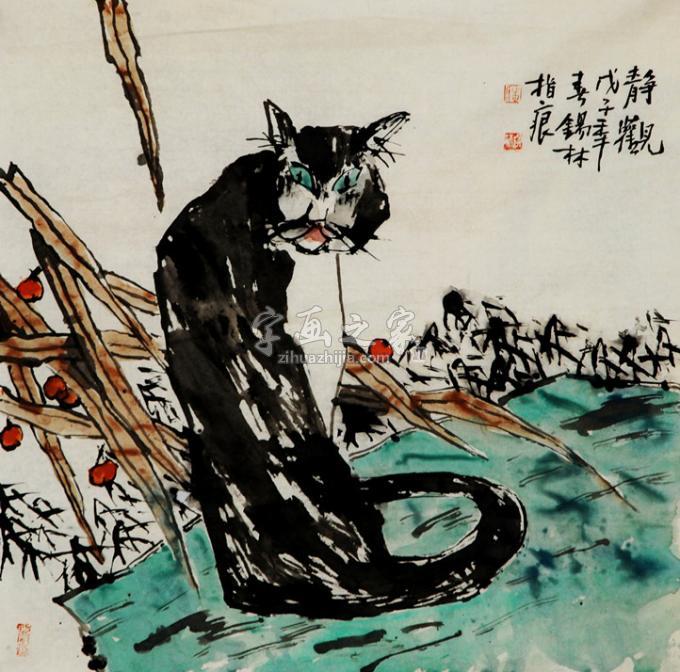 靜觀
戊子年
春錫林
指痕
字画之家
zihuazhijia.com